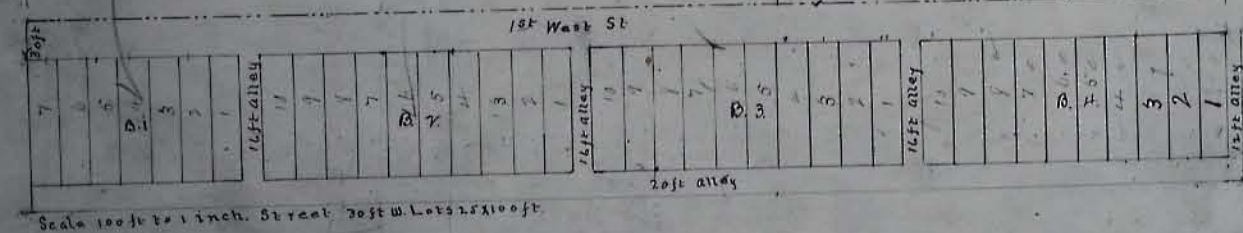 1st West St
30ft
7 6 5 4 3 2 1
B.1
16ft alley
10 9 8 7 6 5 4 3 2 1
B. 2.
16ft alley
10 9 8 7 6 5 4 3 2 1
B. 3.
16ft alley
10 9 8 7 6 5 4 3 2 1
B. 4.
12ft alley
20ft alley
Scale 100ft to 1 inch. Street 30ft W. Lots 25x100ft.